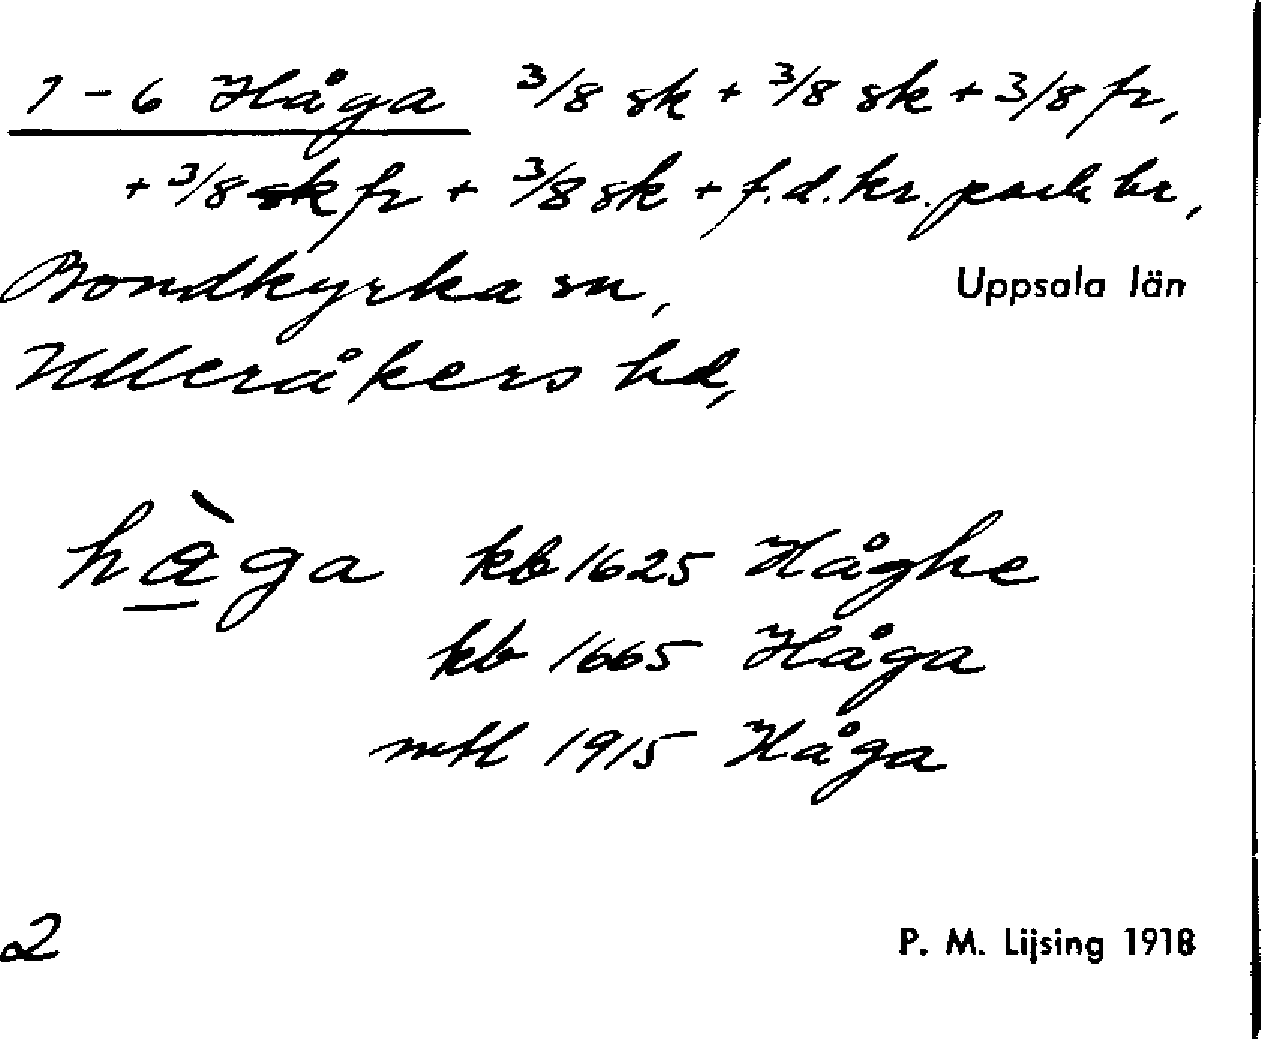 1-6 Håga 3/8 sk + 3/8 sk + 3/8 fr,
+ 3/8 fr + 3/8 sk + f.d. kr.
Bondkyrka sn, Uppsala län
Ulleråkers hd,
hàga kb 1625 Håghe
kb 1665 Håga
mtl 1915 Håga
2 P. M. Lijsing 1918